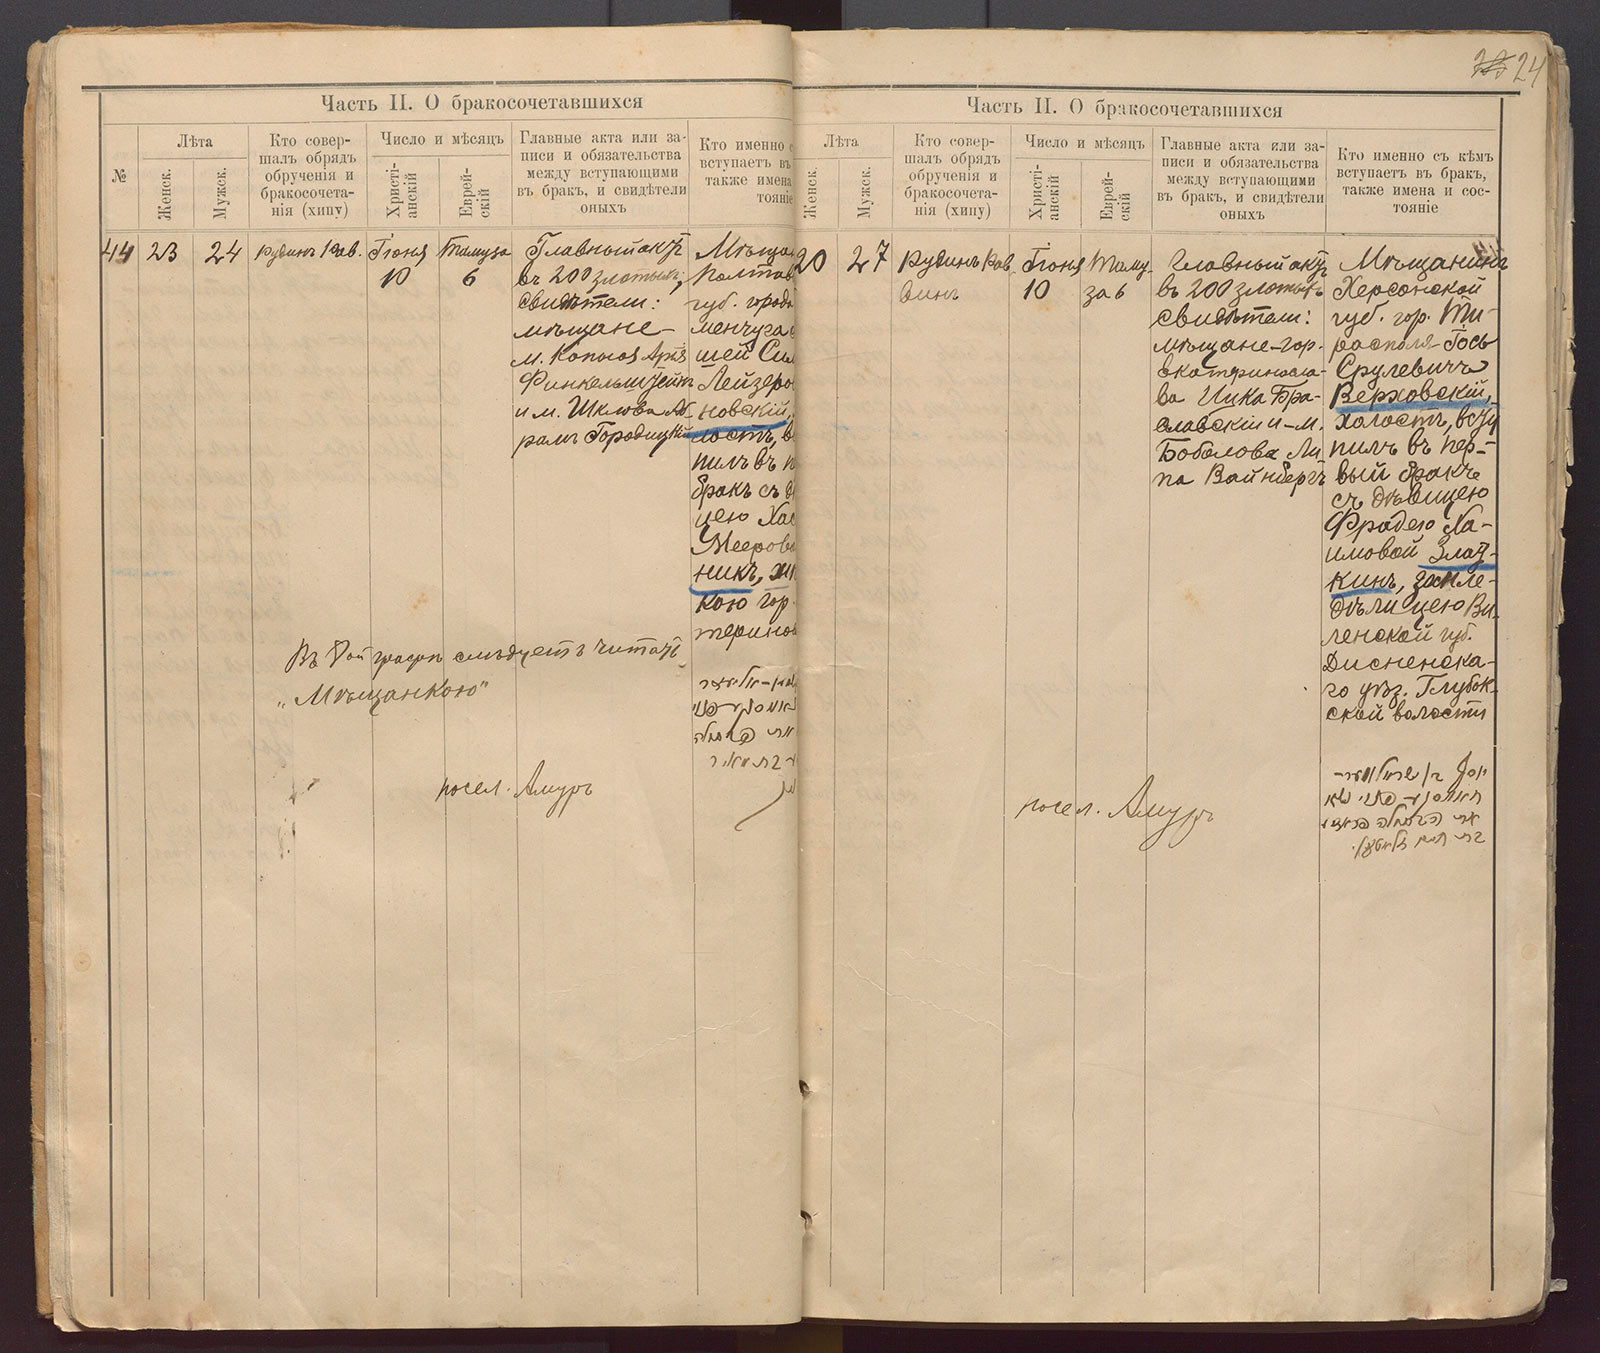 24
Часть II. О бракосочетавшихся
№
Лѣта
Женск.
Мужск.
Кто совер-
шалъ обрядъ
обрученія и
бракосочета-
нія (хипу)
Число и мѣсяцъ
Христі-
анскій
Еврей-
скій
Главные акта или за-
писи и обязательства
между вступающими
въ бракъ, и свидѣтели
оныхъ
Кто именно с
вступаетъ въ
также имена
тояніе
44
23
24
Рубинъ Рав.
Іюня
10
Тамуза
6
Главный актъ
въ 200 злотыхъ;
свидѣтели:
мѣщане-
м. Копыся
Финкельштейнъ
и м. Шклова Аб-
рамъ Городицкій
Мѣща
Полтав
губ. город
менчуга
шей
Лейзеро
новскій,
лостъ, в
пилъ въ п
бракъ съ д
цею Хас
Мееров
никъ,
кою гор.
терино
Въ 8ой графѣ слѣдуетъ читать
„Мѣщанкою"
посел. Амуръ
Часть II. О бракосочетавшихся
Лѣта
Женск.
Мужск.
Кто совер-
шалъ обрядъ
обрученія и
бракосочета-
нія (хипу)
Число и мѣсяцъ
Христі-
анскій
Еврей-
скій
Главные акта или за-
писи и обязательства
между вступающими
въ бракъ, и свидѣтели
оныхъ
Кто именно съ кѣмъ
вступаетъ въ бракъ,
также имена и сос-
тояніе
20
27
Рубинъ Рав
винъ
Іюня
10
Таму-
за 6
Главный актъ
въ 200 злотыхъ
свидѣтели:
мѣщане-гор.
Екатериносла-
ва Ицка Бра-
славскій и-м.
Боболова Ли
па Вайнбергъ
Мѣщанинъ
Херсонской
губ. гор. Ти-
располя Іось
Срулевичъ
Верховскій,
холостъ, всту
пилъ въ пер-
вый бракъ
съ дѣвицею
Фрадею Ха-
имовой Злат-
кинъ, землe-
дѣлицею Ви-
ленской губ.
Дисненска-
го уѣз. Глубок-
ской волости
посел. Амуръ